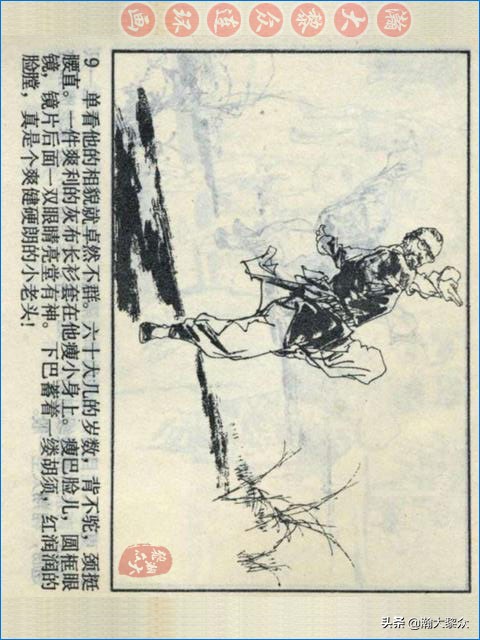 瀚大黎众连环画
9 单看他的相貌就卓然不群。六十大几的岁数，背不驼，颈挺
腰直。一件爽利的灰布长衫套在他瘦小身上。瘦巴脸儿，圆框眼
镜，镜片后面一双眼睛亮堂有神。下巴蓄着一缕胡须，红润润的
脸膛，真是个爽健硬朗的小老头！
瀚大黎众
头条 @瀚大黎众